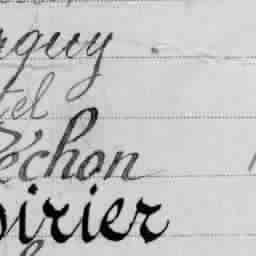 guy
tel
échon
oirier